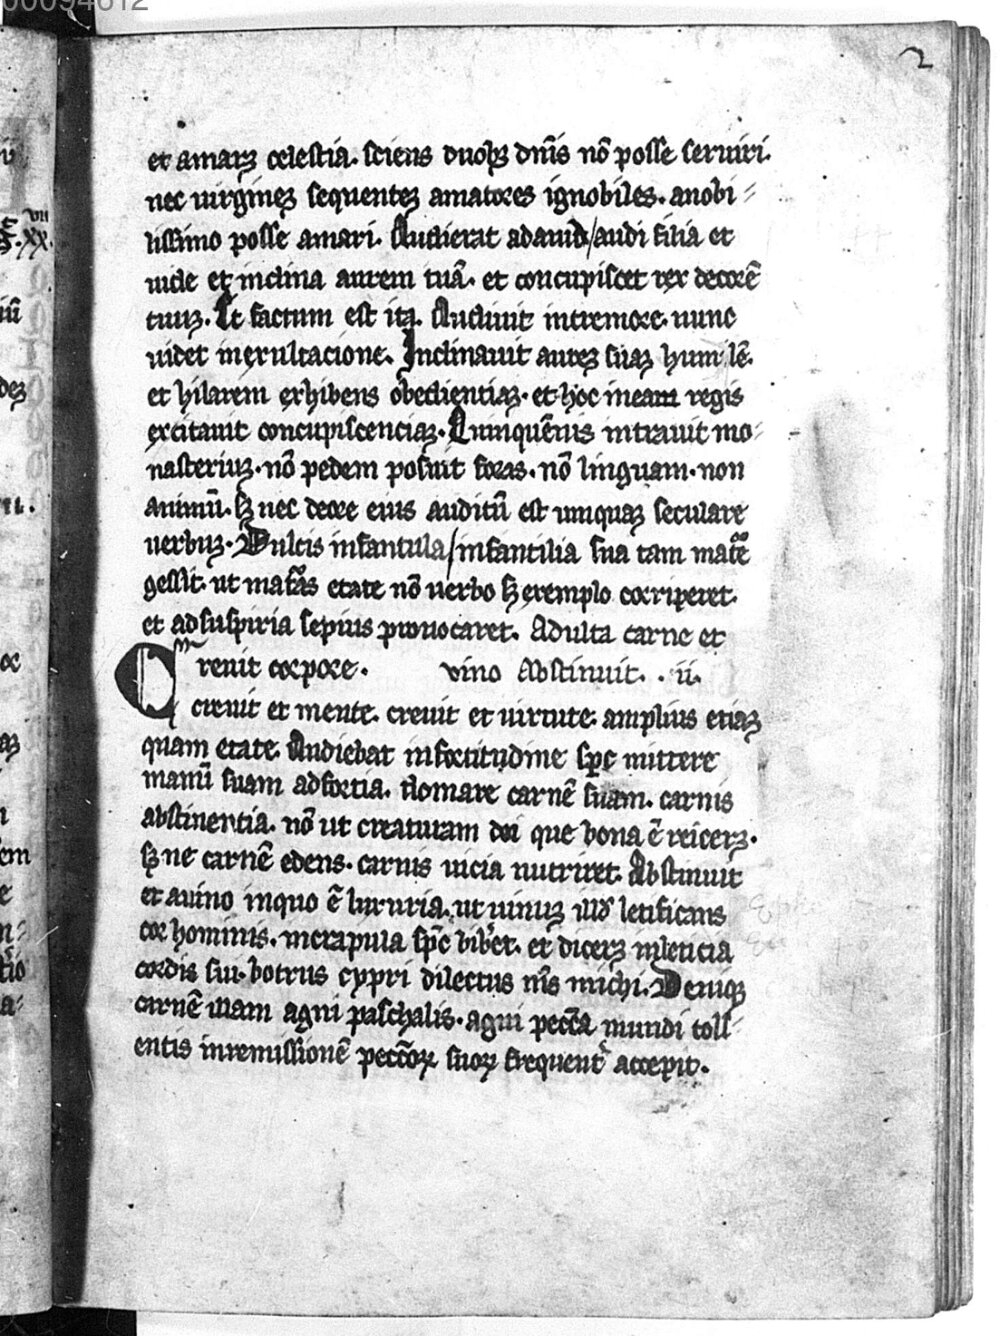 00094612
2
et amarꝫ celestia. sciens duobꝫ dn̄is nō posse seruiri.
nec uirgineꝫ sequenteꝫ amatores ignobiles. anobi⸗
lissimo posse amari. Audierat adauid/audi filia et
uide et inclina aurem tuā. et concupiscet rex decorē
tuuꝫ. Et factum est ita. Audiuit intremore. nunc
uidet inexultacione. Inclinauit aureꝫ suaꝫ humilē.
et hilarem exhibens obedientiaꝫ. et hoc ineam regis
excitauit concupiscenciaꝫ. Quinquēnis intrauit mo⸗
nasteriuꝫ. nō pedem posuit foras. nō linguam. non
animū. sꝫ nec deore eius auditū est umquaꝫ seculare
uerbuꝫ. Dulcis infantula/infantilia sua tam matē
gessit. ut mat̄as etate nō uerbo sꝫ exemplo corriperet.
et adsuspiria sepius prouocaret. Adulta carne et
Creuit corpore. vino Abstinuit. . ii.
creuit et mente. creuit et uirtute. amplius etiaꝫ
quam etate. Audiebat infortitudine sp̄c mittere
manū suam adfortia. domare carnē suam. carnis
abstinentia. nō ut creaturam dei que bona ē reicerꝫ.
sꝫ ne carnē edens. carnis uicia nutriret. Abstinuit
et auino inquo ē luxuria. ut uinuꝫ illd̄ letificans
cor hominis. incrapula sp̄c bib̄et. et dicerꝫ inleticia
cordis sui. botrus cypri dilectus m̄s michi. Deniqꝫ
carnē illam agni paschalis. agni pecc̄a mundi toll⸗
entis inremissionē pecc̄oꝝ suoꝝ frequent᷑ accepit.